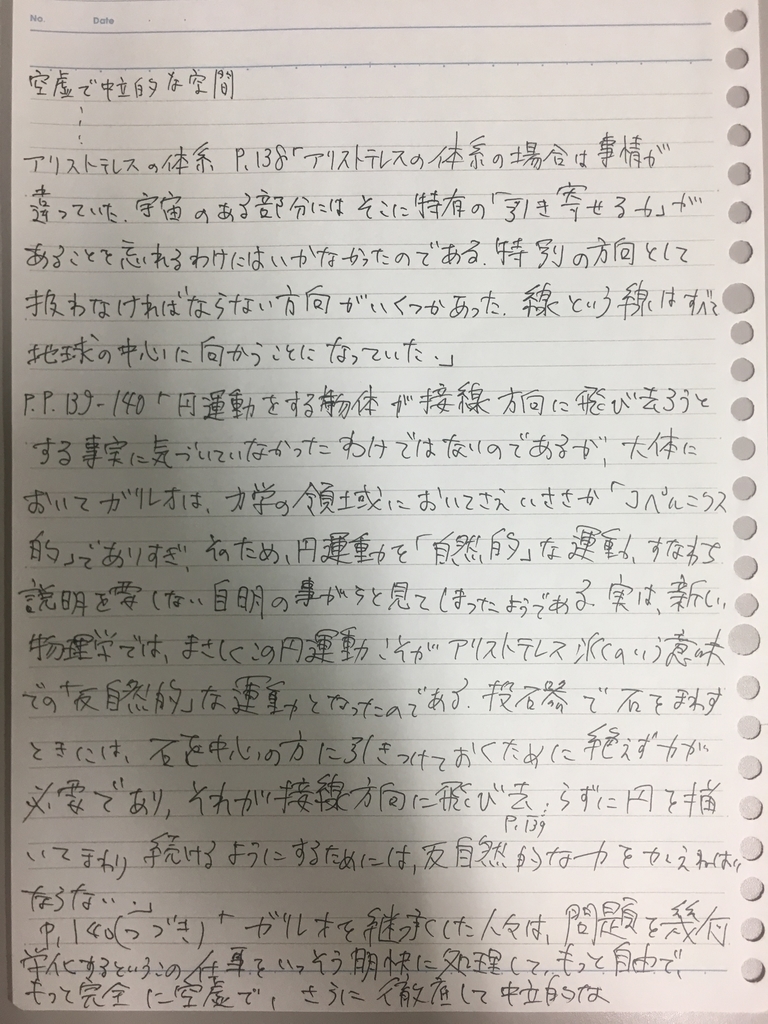 No. Date
空虚で中立的な空間
アリストテレスの体系 P.138「アリストテレスの体系の場合は事情が
違っていた.宇宙のある部分にはそこに特有の「引き寄せる力」が
あることを忘れるわけにはいかなかったのである.特別の方向として
扱わなければならない方向がいくつかあった.線という線はすべて
地球の中心に向かうことになっていた.」
P.P.139-140「円運動をする物体が接線方向に飛び去ろうと
する事実に気づいていなかったわけではないのであるが,大体に
おいてガリレオは,力学の領域においてさえいささか「コペルニクス
的」でありすぎ,そのため,円運動を「自然的」な運動,すなわち
説明を要しない自明の事がらと見てしまったようである.実は,新しい
物理学では,まさしくこの円運動こそがアリストテレス派のいう意味
での「反自然的」な運動となったのである.投石器で石をまわす
ときには,石を中心の方に引きつけておくために絶えず力が
必要であり,それが接線方向に飛び去らずに円を描
P.139
いてまわり続けるようにするためには,反自然的な力をかえねば
ならない.」
P.140(つづき)「ガリレオを継承した人々は,問題を幾何
学化するというこの仕事をいっそう明快に処理して,もっと自由で,
もっと完全に空虚で,さらに徹底して中立的な